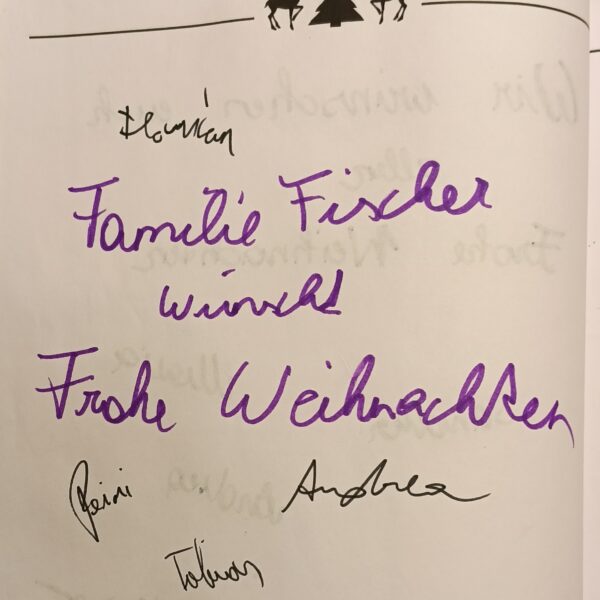 Florian
Familie Fischer
wünscht
Frohe Weihnachten
Reini Andrea
Tobias